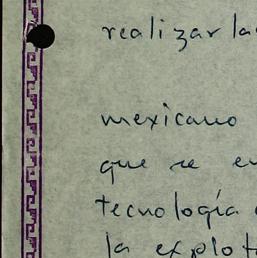 realizar la
mexicano
que se en
tecnología
la explot